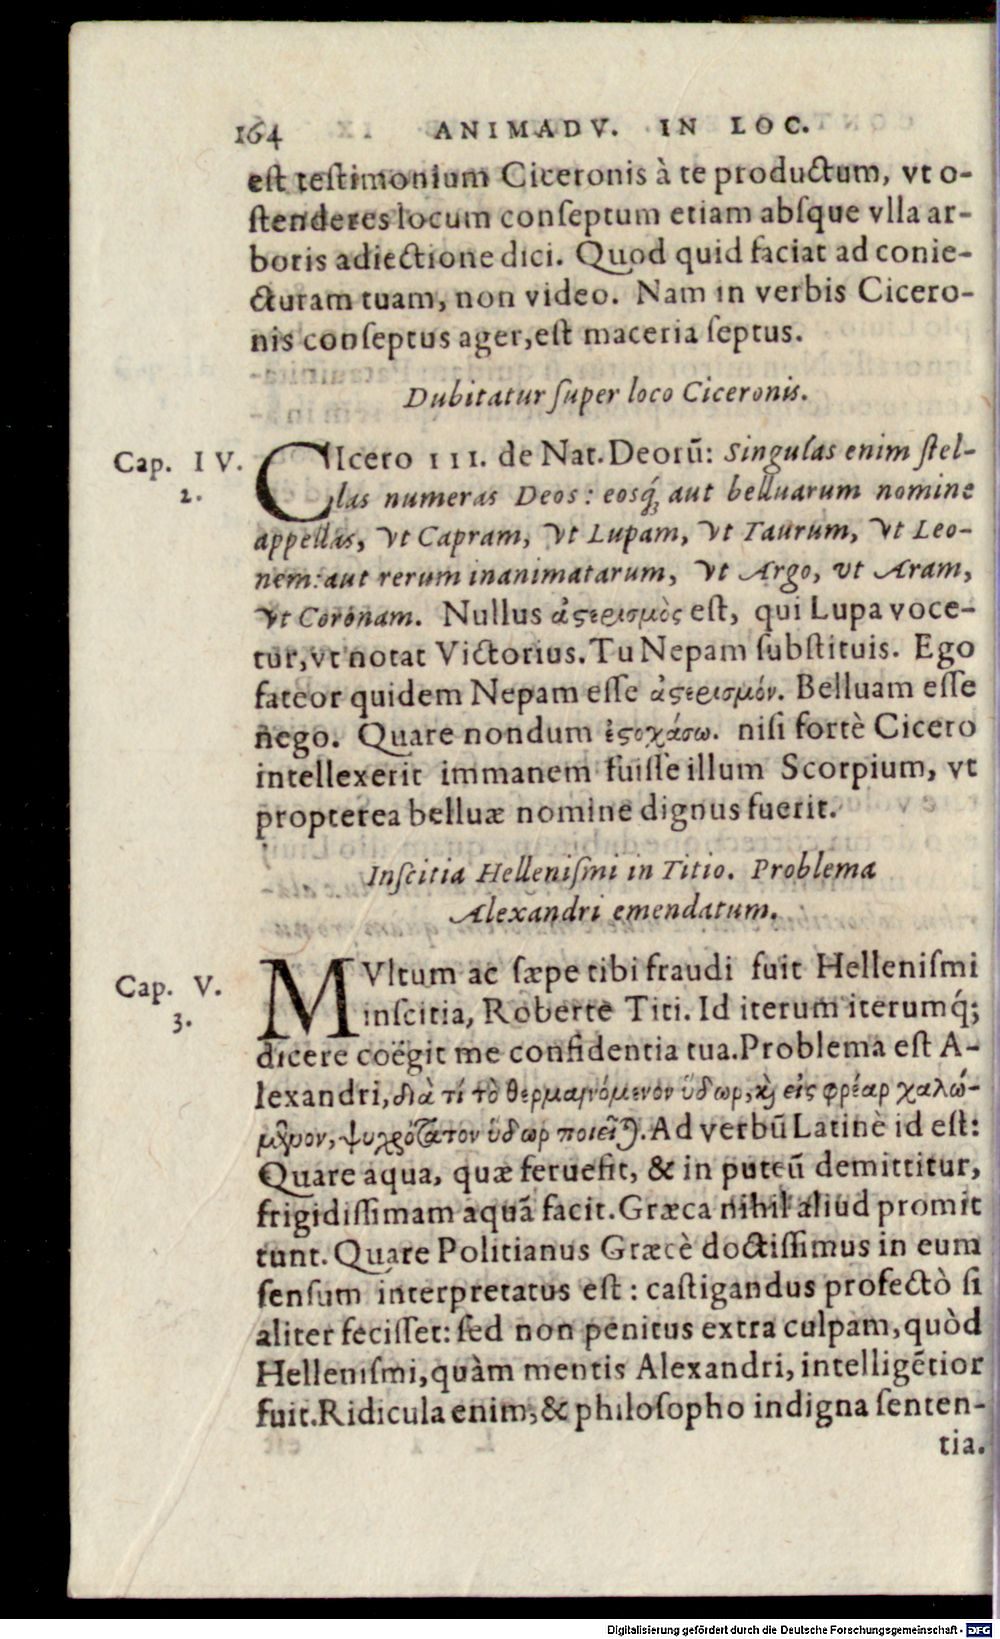 164 ANIMADV. IN LOC.
est testimonium Ciceronis à te productum, vt o-
stenderes locum conseptum etiam absque vlla ar-
boris adiectione dici. Quod quid faciat ad conie-
cturam tuam, non video. Nam in verbis Cicero-
nis conseptus ager, est maceria septus.
Dubitatur super loco Ciceronis.
Cap. IV.
2.
CIcero III. de Nat. Deorū: Singulas enim stel-
las numeras Deos: eosq́; aut belluarum nomine
appellas, vt Capram, vt Lupam, vt Taurum, vt Leo-
nem: aut rerum inanimatarum, vt Argo, vt Aram,
vt Coronam. Nullus ἀϛερισμὸς est, qui Lupa voce-
tur, vt notat Victorius. Tu Nepam substituis. Ego
fateor quidem Nepam esse ἀϛερισμόν. Belluam esse
nego. Quare nondum ἐϛοχάσω. nisi fortè Cicero
intellexerit immanem fuisse illum Scorpium, vt
propterea belluæ nomine dignus fuerit.
Inscitia Hellenismi in Titio. Problema
Alexandri emendatum.
Cap. V.
3.
MVltum ac sæpe tibi fraudi fuit Hellenismi
inscitia, Roberte Titi. Id iterum iterumq́;
dicere coëgit me confidentia tua. Problema est A-
lexandri, διὰ τί τὸ θερμαινόμενον ὕδωρ, καὶ εἰς φρέαρ χαλώ-
μενον, ψυχρότατον ὕδωρ ποιεῖται. Ad verbū Latinè id est:
Quare aqua, quæ feruefit, & in puteū demittitur,
frigidissimam aquā facit. Græca nihil aliud promit
tunt. Quare Politianus Græcè doctissimus in eum
sensum interpretatus est: castigandus profectò si
aliter fecisset: sed non penitus extra culpam, quòd
Hellenismi, quàm mentis Alexandri, intelligētior
fuit. Ridicula enim, & philosopho indigna senten-
tia.
Digitalisierung gefördert durch die Deutsche Forschungsgemeinschaft - DFG